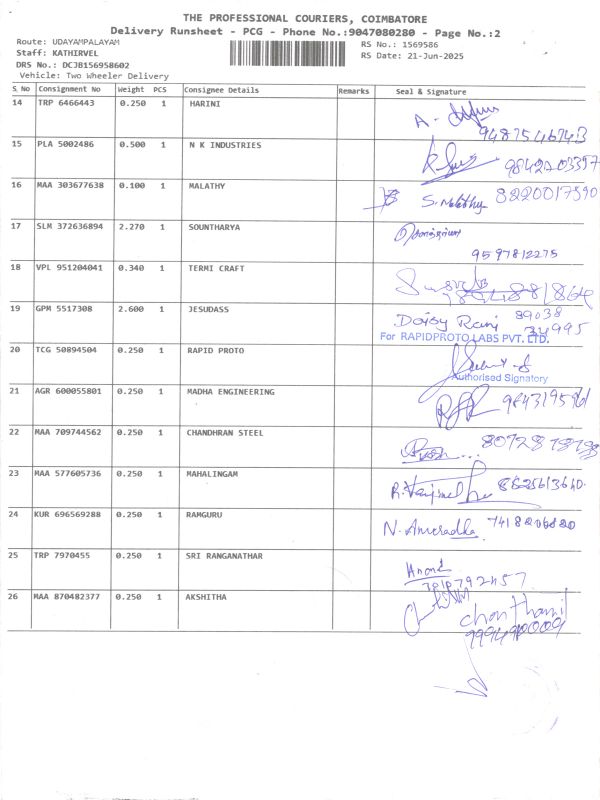 THE PROFESSIONAL COURIERS, COIMBATORE
Delivery Runsheet - PCG - Phone No.:9047080280 - Page No.:2
Route: UDAYAMPALAYAM
RS No.: 1569586
Staff: KATHIRVEL
RS Date: 21-Jun-2025
DRS No.: DCJB156958602
Vehicle: Two Wheeler Delivery
S.No Consignment No Weight PCS Consignee Details Remarks Seal & Signature
14 TRP 6466443 0.250 1 HARINI
A.
15 PLA 5002486 0.500 1 N K INDUSTRIES
9842203397
16 MAA 303677638 0.100 1 MALATHY
S. Malathy 8220017590
17 SLM 372636894 2.270 1 SOUNTHARYA
9597812275
18 VPL 951204041 0.340 1 TERMI CRAFT
19 GPM 5517308 2.600 1 JESUDASS
Daisy Rani 89038
34995
For RAPIDPROTO LABS PVT. LTD.
20 TCG 50894504 0.250 1 RAPID PROTO
Authorised Signatory
21 AGR 600055801 0.250 1 MADHA ENGINEERING
22 MAA 709744562 0.250 1 CHANDHRAN STEEL
23 MAA 577605736 0.250 1 MAHALINGAM
24 KUR 696569288 0.250 1 RAMGURU
N. Anuradha 7418206820
25 TRP 7970455 0.250 1 SRI RANGANATHAR
Anand
26 MAA 870482377 0.250 1 AKSHITHA